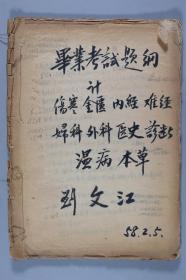 畢業考試题綱
計
傷寒 金匱 内經 难經
婦科 外科 医史 診断
溫病 本草
刘文江
58.2.5.